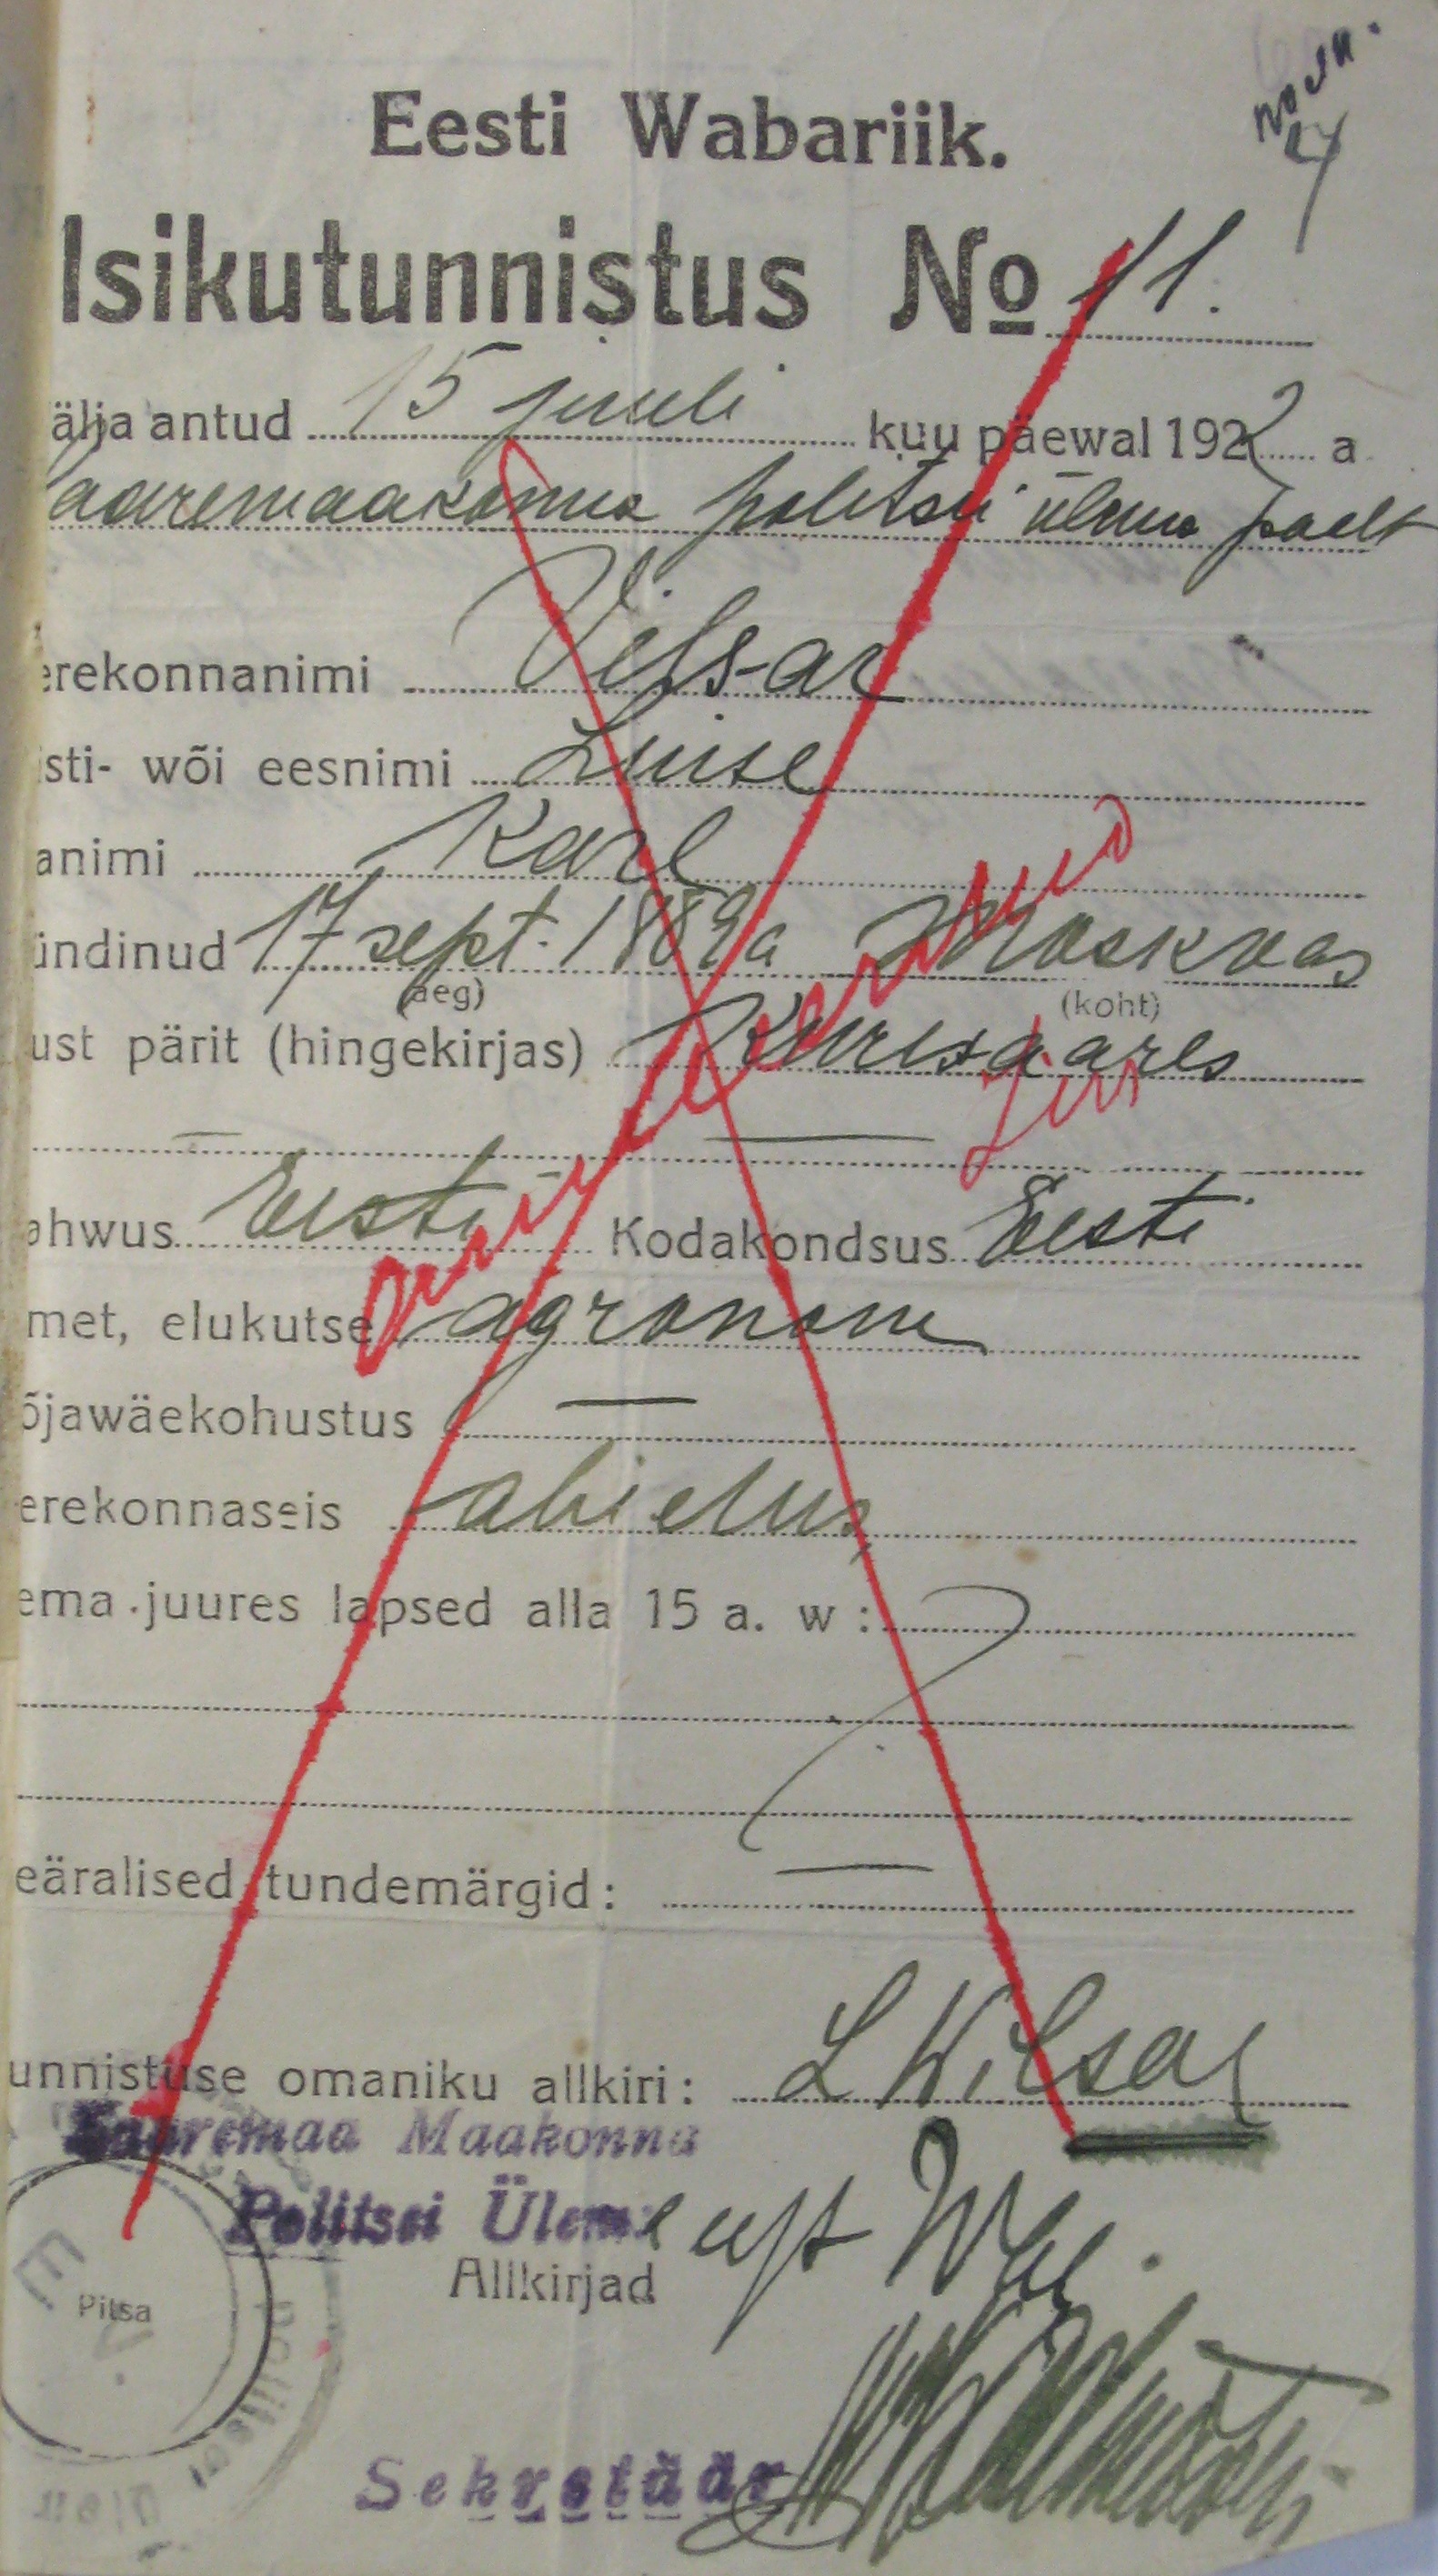 Eesti Wabariik.
Isikutunnistus No 11.
älja antud 15 juuli kuu päewal 1922 a
aaremaakonna politsei ülema poolt
erekonnanimi Vilsar
isti- wõi eesnimi Luise
animi Karl
ündinud 17 sept. 1889 a Moskvas
(aeg) (koht)
ust pärit (hingekirjas) Kuresaares
ahwus Eesti Kodakondsus Eesti
met, elukutse agronom
õjawäekohustus —
erekonnaseis abielus
ema juures lapsed alla 15 a. w:
eäralised tundemärgid: —
unnistuse omaniku allkiri: L Wilsar
Saaremaa Maakonna
Politsei Ülem
Allkirjad
Pitsa
Sekretäär